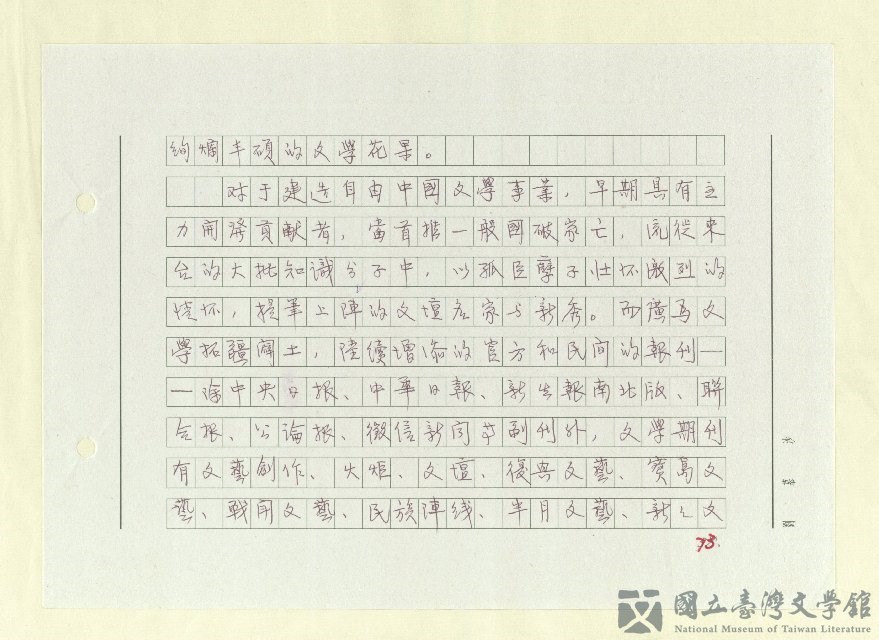 絢爛丰碩的文學花果。
对于建造自由中國文學事業，早期具有主
力開濟貢献者，當首推一般國破家亡，流徙來
台的大批知識分子中，以孤臣孽子壮怀激烈的
情怀，提筆上陣的文壇名家与新秀。而廣為文
學拓疆闢土，陸續增添的官方和民间的報刊—
—除中央日报、中華日報、新生報南北版、聯
合报、公論报、徵信新闻等副刊外，文學期刊
有文藝創作、火炬、文壇、復興文藝、寶島文
藝、戰鬥文藝、民族陣线、半月文藝、新文
73.
國立臺灣文學館
National Museum of Taiwan Literature